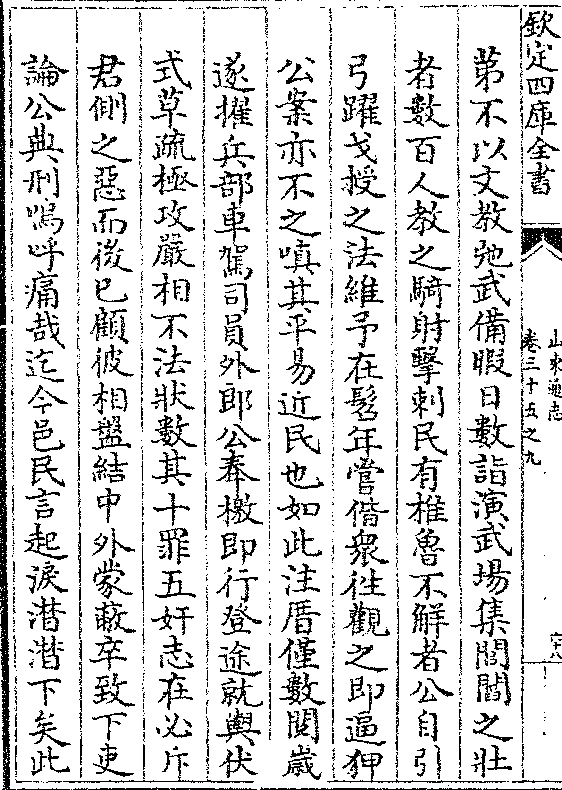 欽定四庫全書
山東通志
卷三十五之九
六十八
第不以文教弛武備暇日數詣演武場集閭閻之壯
者數百人教之騎射擊刺民有椎魯不解者公自引
弓躍戈授之法維予在髫年嘗偕衆徃觀之即逼狎
公案亦不之嗔其平易近民也如此注厝僅數閱歲
遂擢兵部車駕司員外郎公奉檄即行登途就輿伏
式草疏極攻嚴相不法狀數其十罪五奸志在必斥
君側之惡而後已顧彼相盤結中外蒙蔽卒致下吏
論公典刑嗚呼痛哉迄今邑民言起淚潸潸下矣此